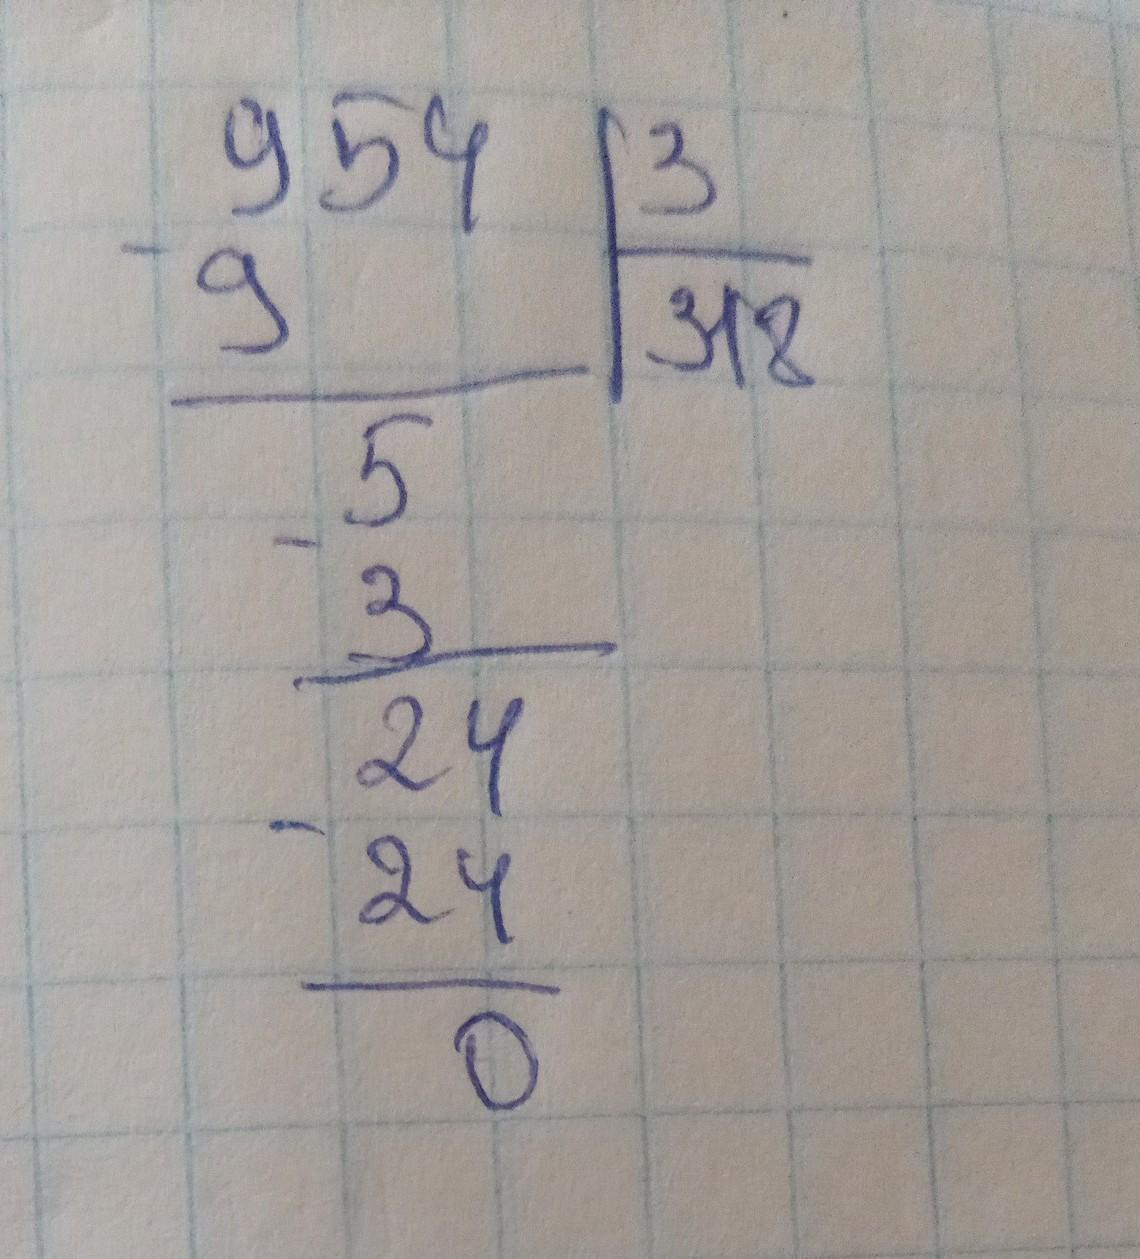 954 | 3
- 9 318
5
- 3
24
- 24
0